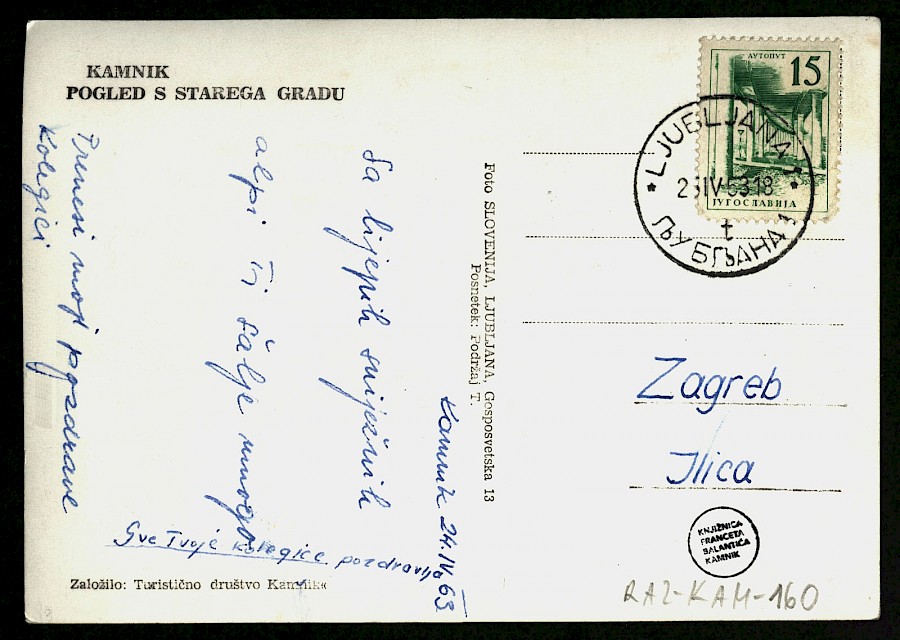 KAMNIK
POGLED S STAREGA GRADU
Kamnik 24.IV.63
Sa lijepih sniježnih
alpi Ti šalje mnogo
Prenesi moji pozdrave
Kolegici
Sve Tvoje kolegice pozdravlja
Založilo: Turistično društvo Kamnik«
Foto SLOVENIJA, LJUBLJANA, Gosposvetska 13
Posnetek: Podržaj T.
АУТОПУТ
15
ЈУГОСЛАВИЈА
LJUBLJANA 1
IV 63 18
t
ЉУБЉАНА 1
Zagreb
Ilica
KNJIŽNICA
FRANCETA
BALANTIČA
KAMNIK
RAZ-KAM-160